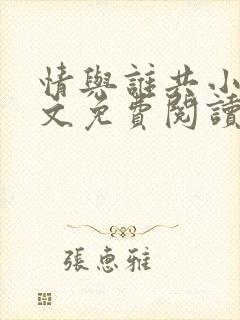 情與誰共小
文免費閱讀
張惠雅